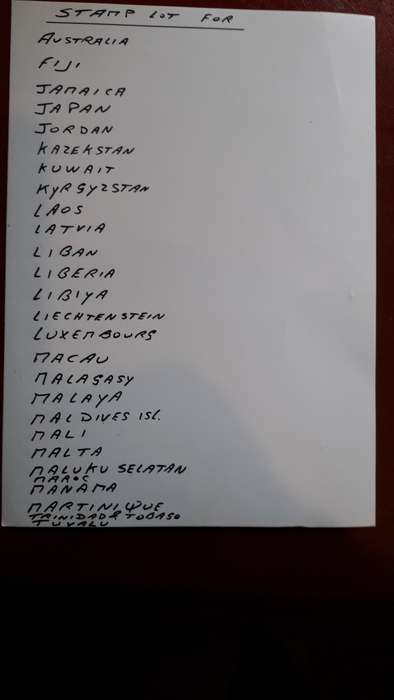 STAMP LOT FOR
AUSTRALIA
FIJI
JAMAICA
JAPAN
JORDAN
KAZEKSTAN
KUWAIT
KYRGYZSTAN
LAOS
LATVIA
LIBAN
LIBERIA
LIBIYA
LIECHTENSTEIN
LUXEMBOURG
MACAU
MALAGASY
MALAYA
MALDIVES ISL.
MALI
MALTA
MALUKU SELATAN
MAROC
MANAMA
MARTINIQUE
TRINIDAD & TOBAGO
TUVALU